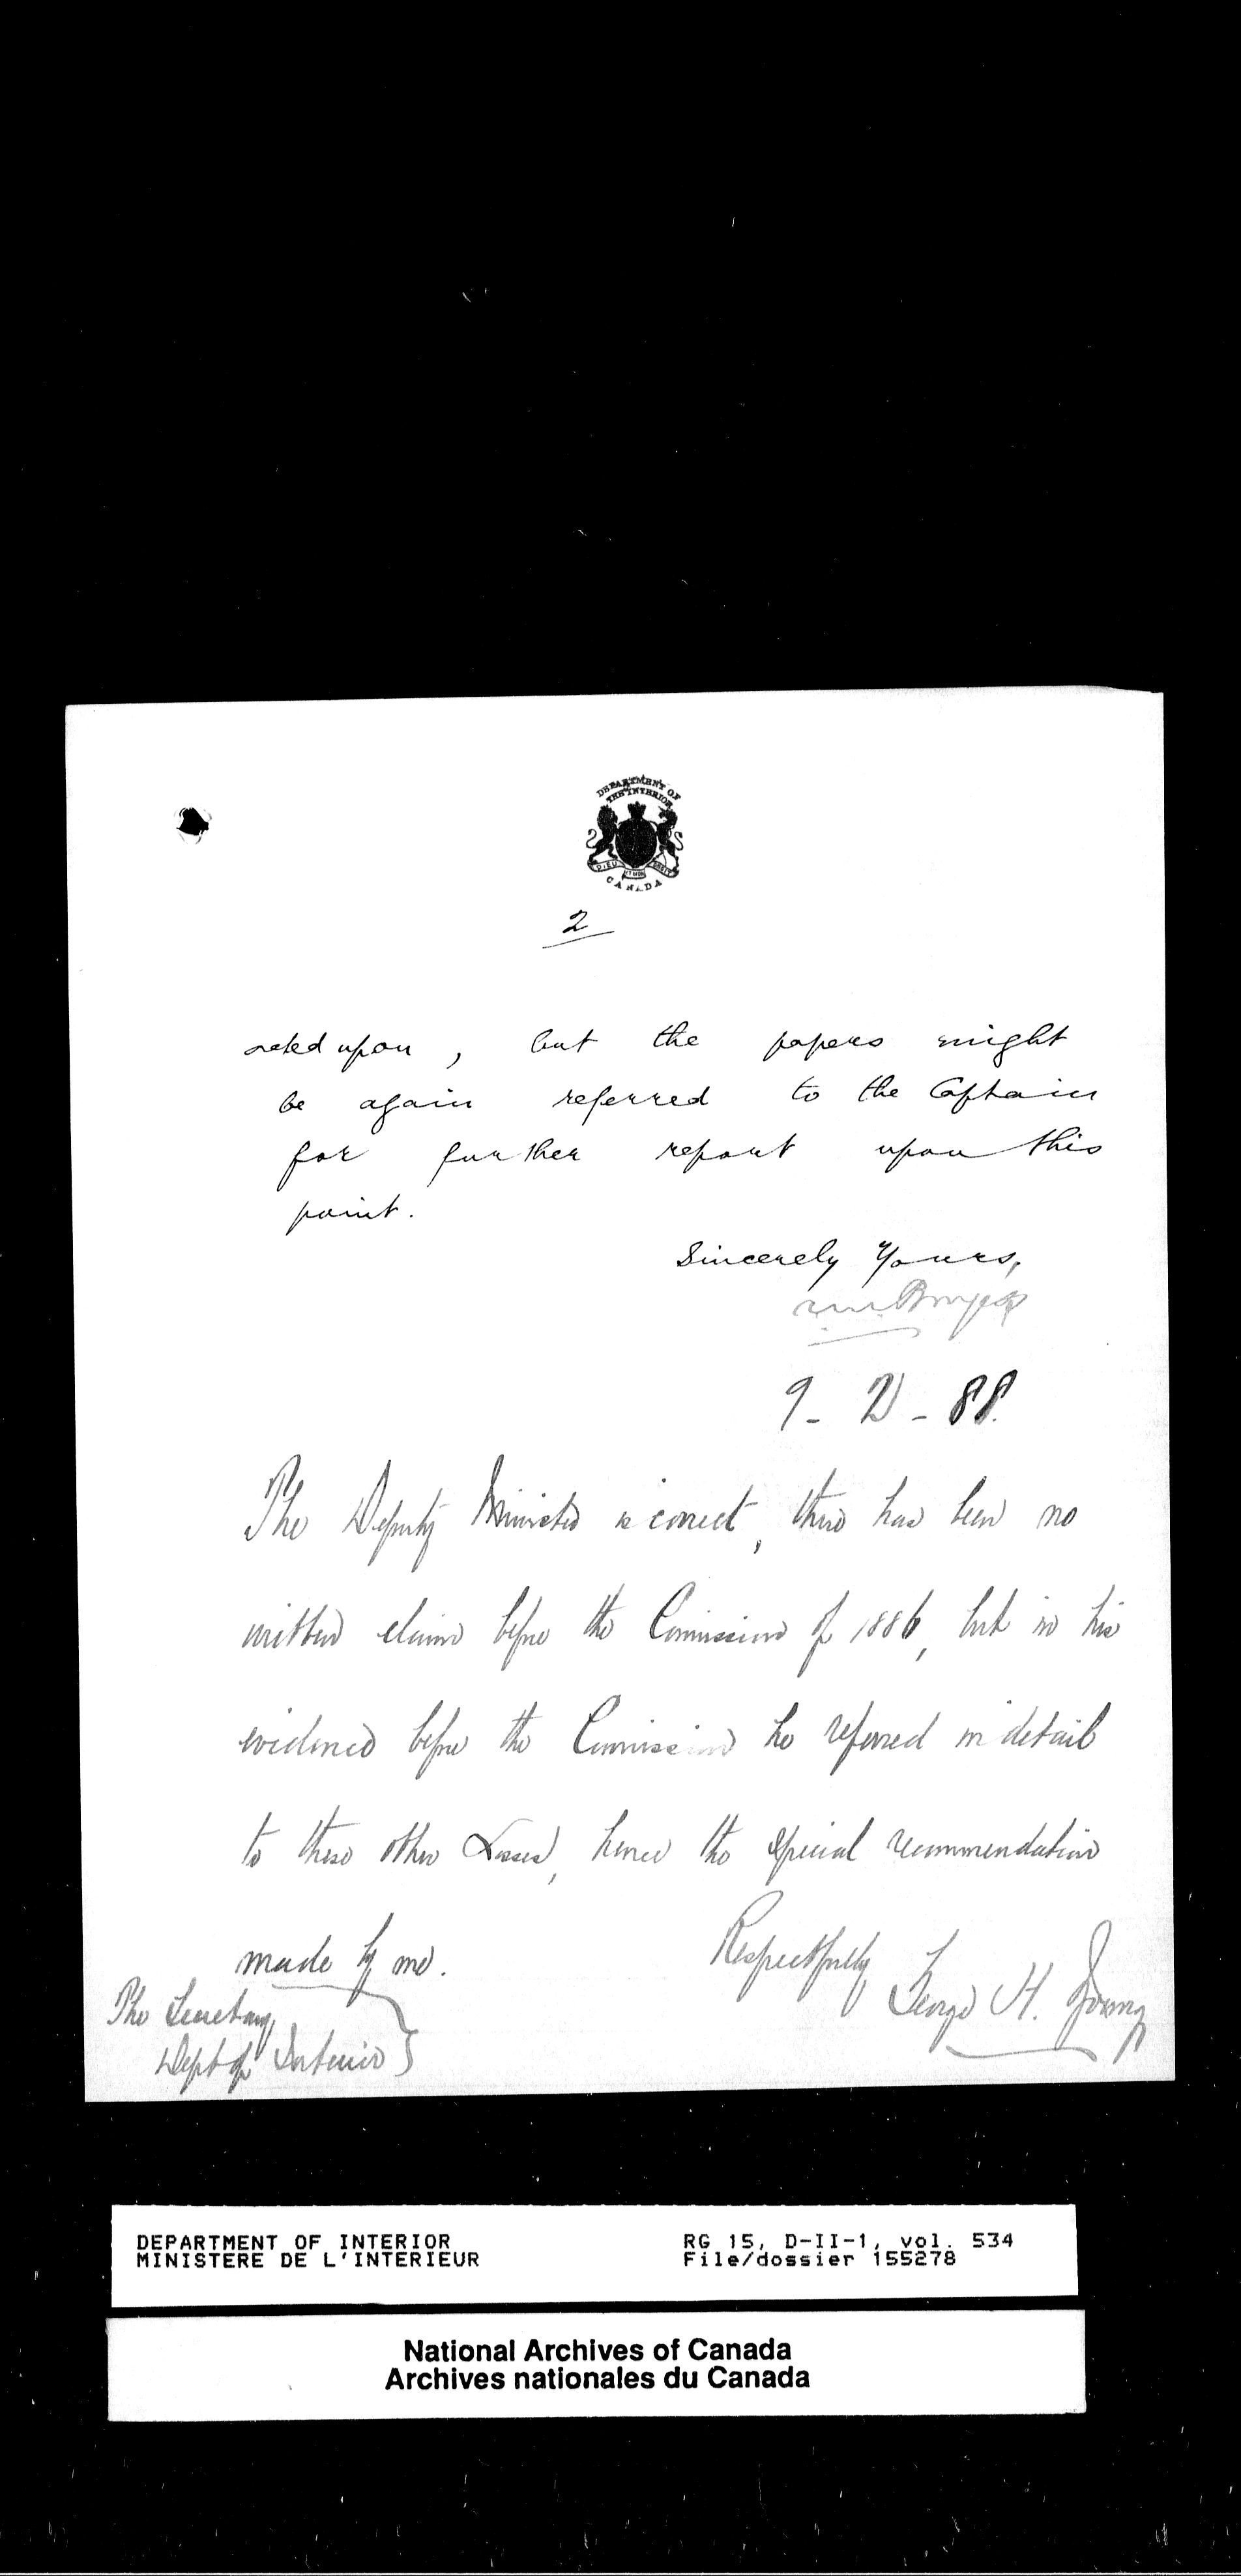 DEPARTMENT OF
THE INTERIOR
DIEU ET MON DROIT
CANADA
2
acted upon, but the papers might
be again referred to the Captain
for further report upon this
point.
Sincerely Yours,
9 - 2 - 88.
The Deputy Minister is correct, there has been no
written claim before the Commission of 1886, but in his
evidence before the Commission he referred in detail
to these other Losses, hence the special recommendation
made by me.
Respectfully
George H. Young
The Secretary,
Dept of Interior
DEPARTMENT OF INTERIOR
MINISTERE DE L'INTERIEUR
RG 15, D-II-1, vol. 534
File/dossier 155278
National Archives of Canada
Archives nationales du Canada